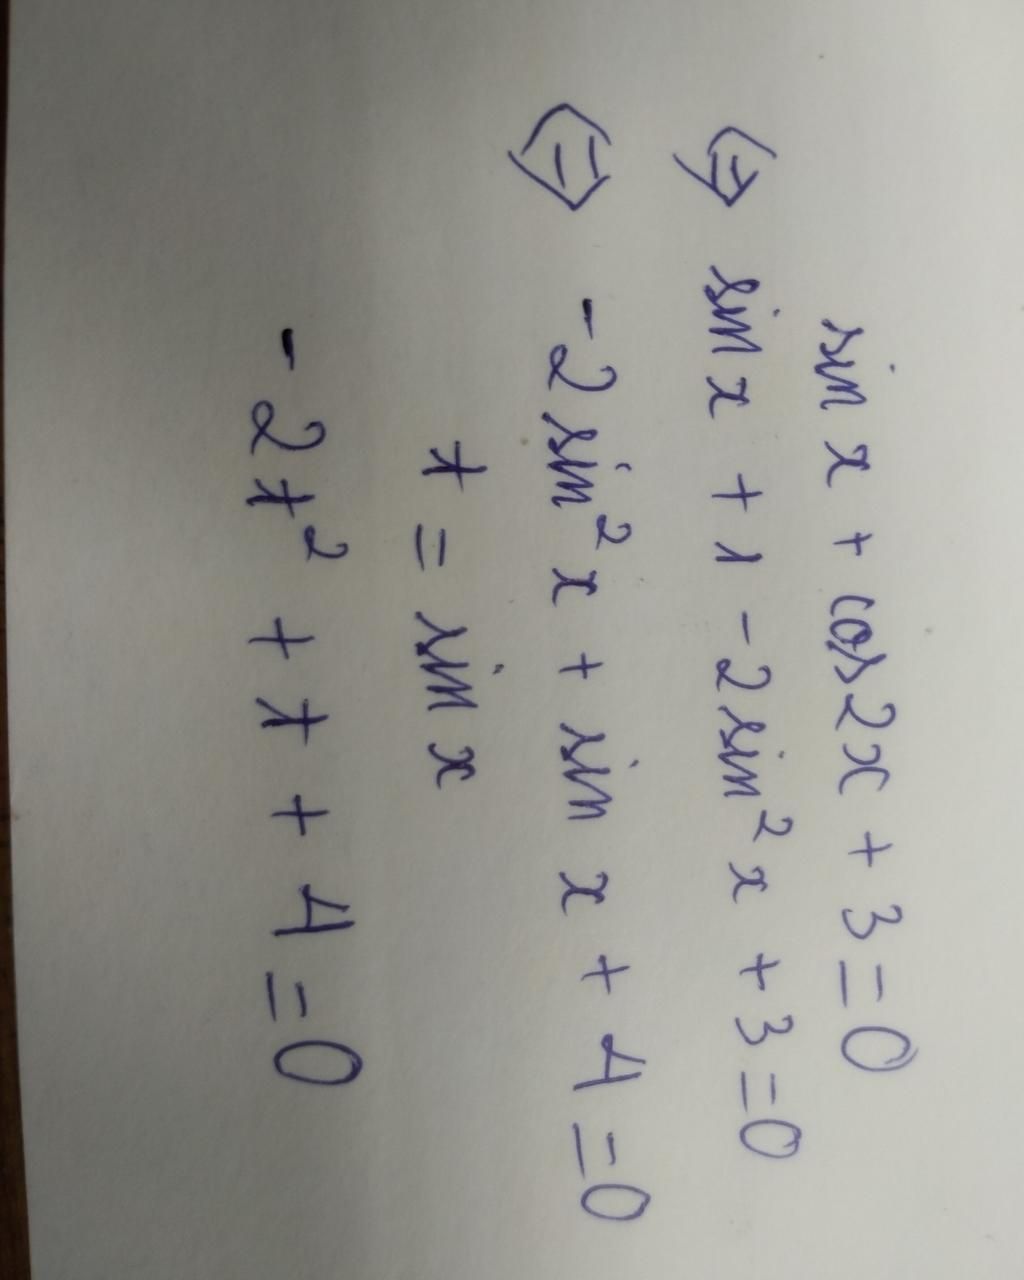 sin x + cos 2x + 3 = 0
⇔ sin x + 1 - 2 sin² x + 3 = 0
⇔ - 2 sin² x + sin x + 4 = 0
t = sin x
- 2t² + t + 4 = 0